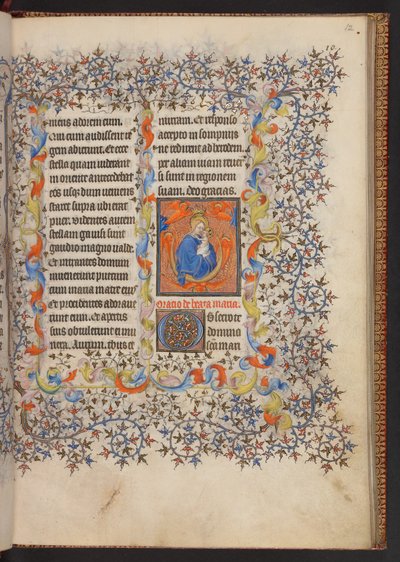 12
10
niens adorem eum.
Qui cum audissent re
gem abierunt. Et ecce
stella quam viderant
in oriente antecedebat
eos usq; dum veniens
staret supra ubi erat
puer. Videntes autem
stellam gavisi sunt
gaudio magno valde.
Et intrantes domum
invenerunt puerum
cum maria matre eius
Et procidentes adorave
runt eum. Et apertis
suis obtulerunt ei mu
nera. Aurum. thus et
mirram. Et responso
accepto in sompnis
ne redirent ad herodem
per aliam viam rever
si sunt in regionem
suam. deo gracias.
Oratio de beata maria.
Obsecro te
domina
sca mari